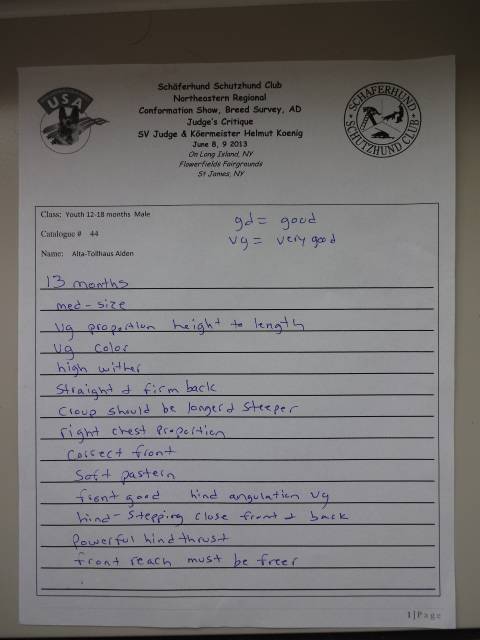 Schäferhund Schutzhund Club
Northeastern Regional
Conformation Show, Breed Survey, AD
Judge's Critique
SV Judge & Köermeister Helmut Koenig
June 8, 9 2013
On Long Island, NY
Flowerfields Fairgrounds
St James, NY
USA
SCHÄFERHUND
SCHUTZHUND CLUB
Class: Youth 12-18 months Male
gd = good
Catalogue # 44
vg = very good
Name: Alta-Tollhaus Aiden
13 months
med-size
vg proportion height to length
vg color
high wither
Straight & firm back
Croup should be longer & steeper
right chest proportion
Correct front
Soft pastern
front good hind angulation vg
hind-stepping close front & back
Powerful hind thrust
front reach must be freer
1 | Page